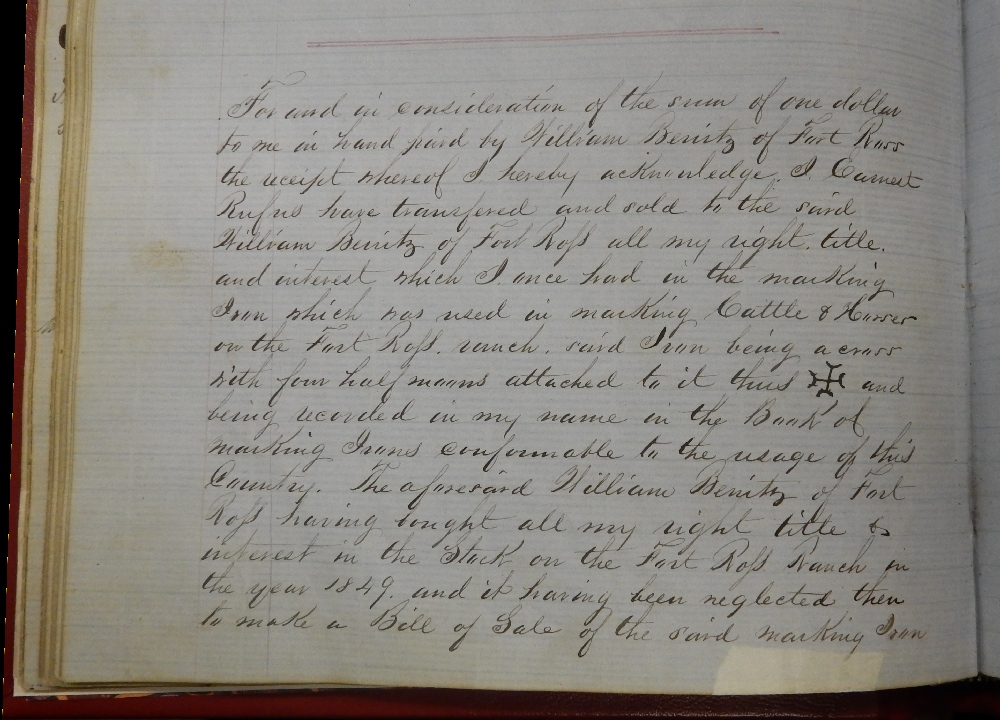 For and in consideration of the sum of one dollar
to me in hand paid by William Benitz of Fort Ross
the receipt whereof I hereby acknowledge. I Earnest
Rufus have transfered and sold to the said
William Benitz of Fort Roß all my right. title.
and interest which I once had in the marking
Iron which was used in marking Cattle & Horses
on the Fort Roß. ranch. said Iron being a cross
with four half moons attached to it thus and
being recorded in my name in the Book of
marking Irons conformable to the usage of this
Country. The aforesaid William Benitz of Fort
Roß having bought all my right title &
interest in the Stock on the Fort Roß Ranch in
the year 1849. and it having been neglected then
to make a Bill of Sale of the said marking Iron